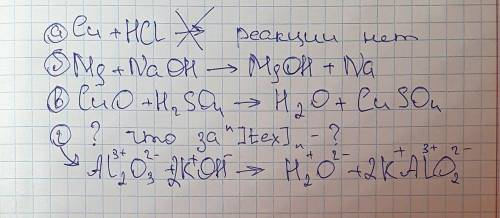 а) Cu + HCl ⇸ реакции нет
б) Mg + NaOH → MgOH + Na
в) CuO + H₂SO₄ → H₂O + CuSO₄
г) ? что за "]tex]" - ?
Al₂³⁺O₃²⁻ + 2K⁺OH⁻ → H₂⁺O²⁻ + 2K⁺Al³⁺O₂²⁻